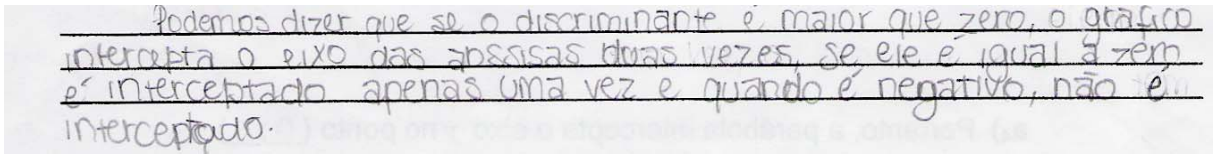 Podemos dizer que se o discriminante é maior que zero, o gráfico
intercepta o eixo das abssisas duas vezes, se ele é igual a zero
é interceptado apenas uma vez e quando é negativo, não é
interceptado.